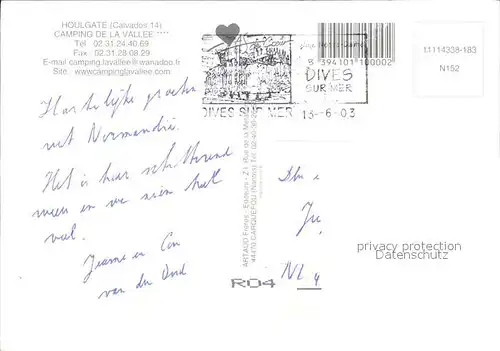 HOULGATE (Calvados 14)
CAMPING DE LA VALLEE ****
Tel 02.31.24.40.69
Fax 02.31.28.08.29
E-mail camping.lavallee@wanadoo.fr
Site. www.campinglavallee.com
Hartelijke groeten
uit Normandië.
Het is hier schitterend
weer en we zien heel
veel.
Jeanne en Con
van der
DIVES SUR MER
3 394101 100002
DIVES
SUR MER
13-6-03
ARTAUD Frères - Editeurs - Z.I. Rue de la Métallurgie
44470 CARQUEFOU (Nantes) Tel 02.40
R04
NL
privacy protection
Datenschutz
L1114338-183
N152